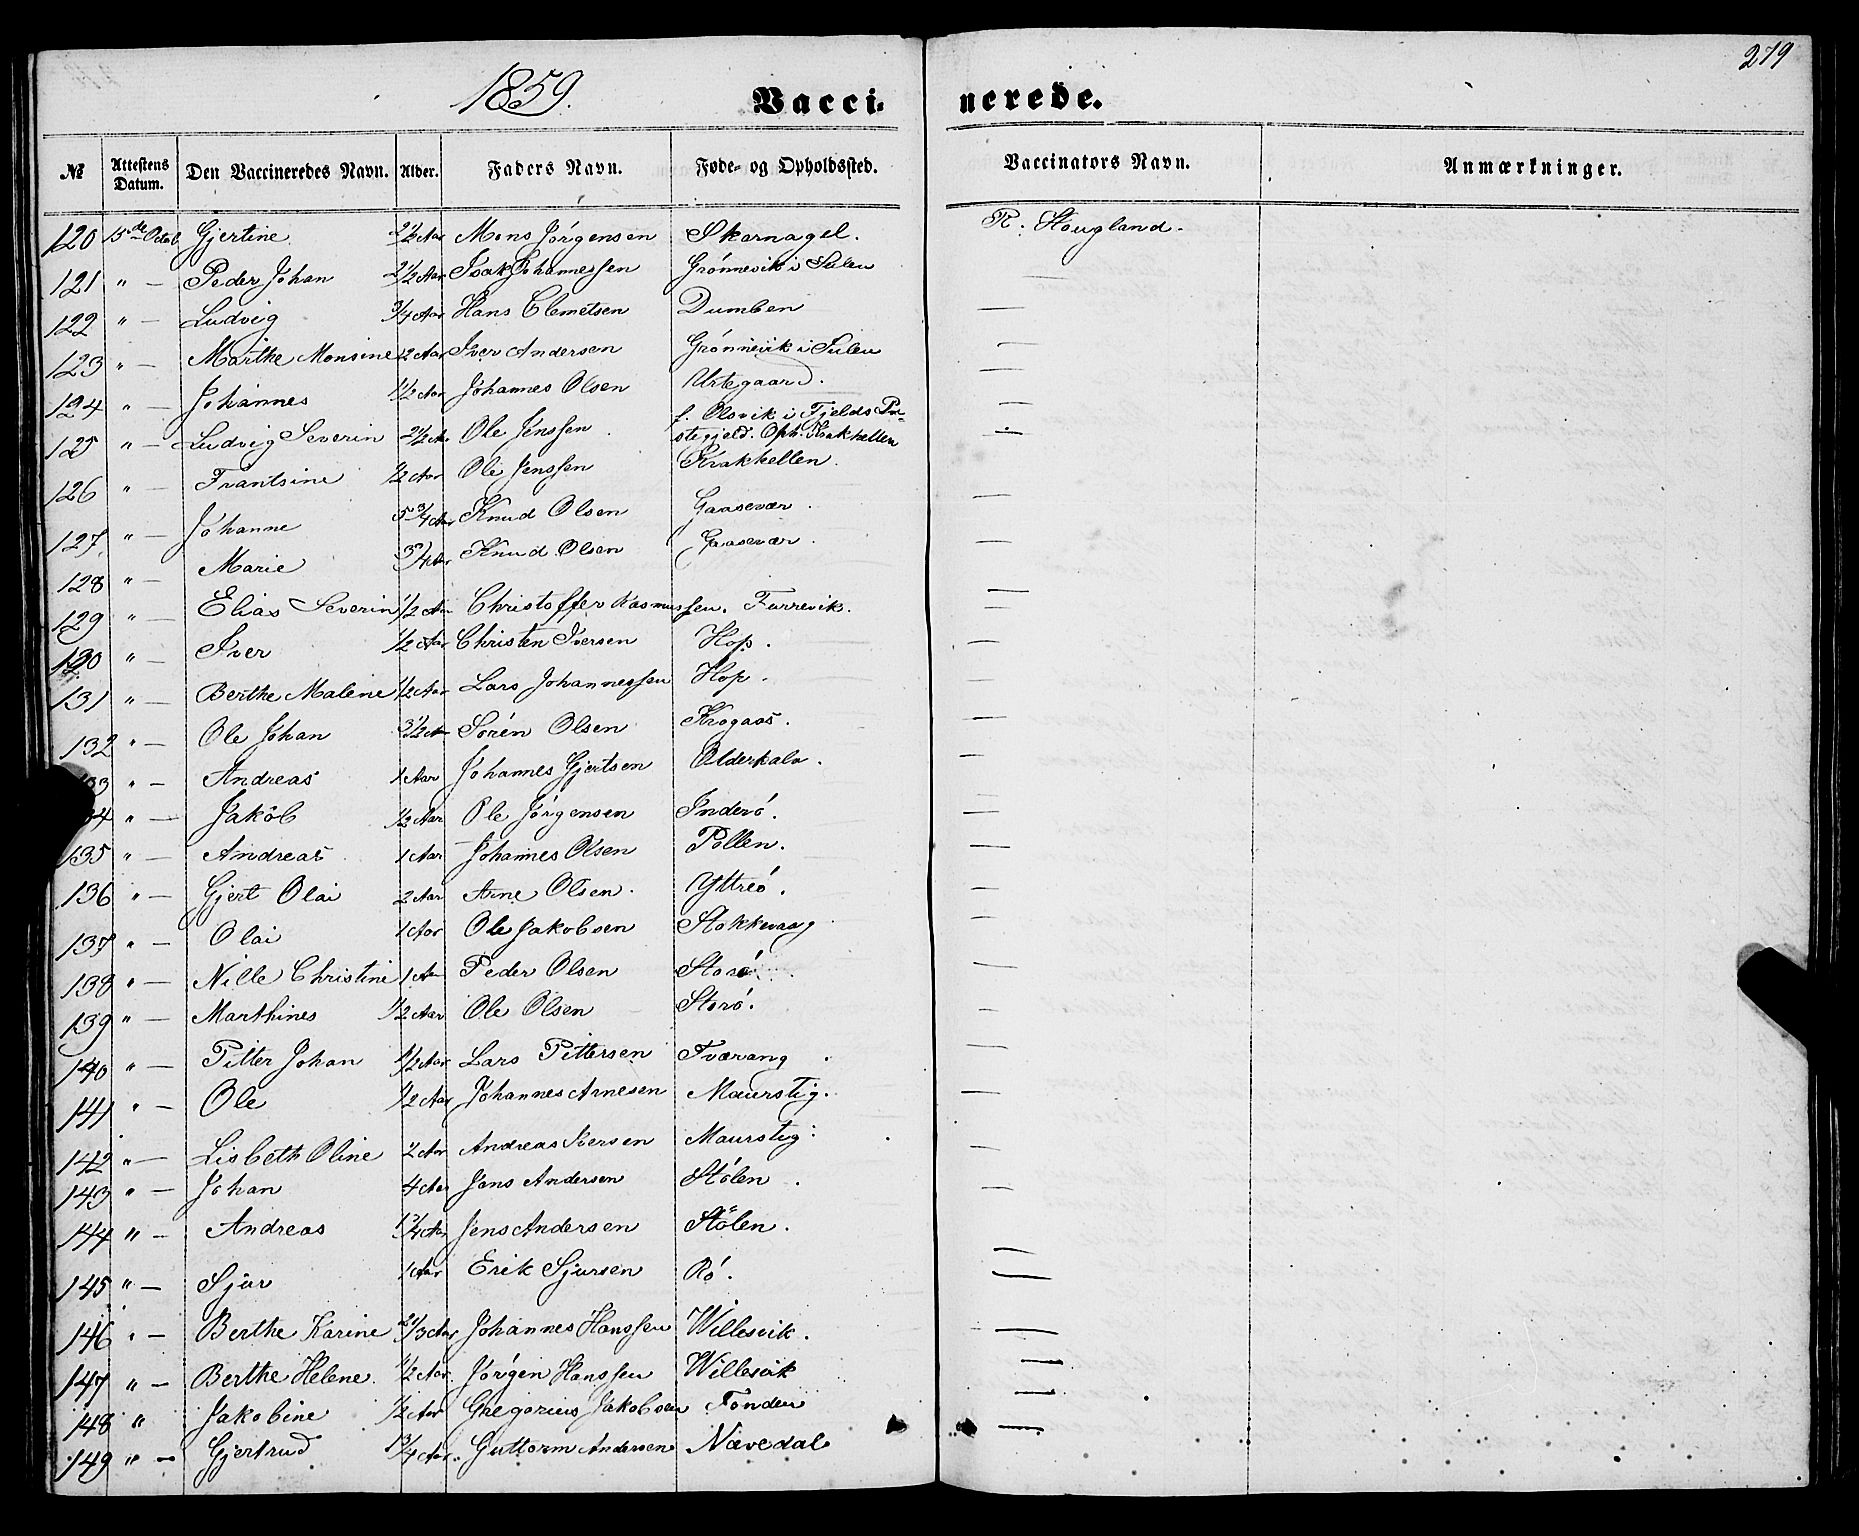 279
1859.
Vacci-
nerede.
№ Attestens Datum. Den Vaccineredes Navn. Alder. Faders Navn. Føde- og Opholdssted. Vaccinators Navn. Anmærkninger.
120 15de Octob Gjertine 2½ Aar Mons Jörgensen Skarnagel. R. Hougland.
121 " — Peder Johan 2½ Aar Isak Johannessen Grönnevik i Sulen —
122 " — Ludvig ¾ Aar Hans Clemetsen Dumben —
123 " — Marthe Monsine 12 Aar Iver Andersen Grönnevik i Sulen —
124 " — Johannes 1½ Aar Johannes Olsen Urtegaard. —
125 " — Ludvig Severin 2½ Aar Ole Jenssen f. Olsvik i Fjelds Præ-
stegjeld. Oph. Krakhellen —
126 " — Frantsine ½ Aar Ole Jenssen Krakhellen. —
127 " — Johanne 5¾ Aar Knud Olsen Gaasevær. —
128 " — Marie ¾ Aar Knud Olsen Gaasevær. —
129 " — Elias Severin ½ Aar Christoffer Rasmussen. Furrevik. —
130 " — Iver ½ Aar Christen Iversen Hop. —
131 " — Berthe Malene ½ Aar Lars Johannessen Hop. —
132 " — Ole Johan 3½ Aar Sören Olsen Krogaas. —
133 " — Andreas 1 Aar Johannes Gjertsen Olderkalv. —
134 " — Jakob ½ Aar Ole Jörgensen Inderö. —
135 " — Andreas 1 Aar Johannes Olsen Pollen. —
136 " — Gjert Olai 2 Aar Arne Olsen. Yttreö. —
137 " — Olai 1 Aar Ole Jakobsen Stokkevaag —
138 " — Nille Christine 1 Aar Peder Olsen Storö. —
139 " — Marthines ½ Aar Ole Olsen Storö. —
140 " — Pitter Johan ½ Aar Lars Pittersen Tværang. —
141 " — Ole ½ Aar Johannes Arnesen Maurstig. —
142 " — Lisbeth Oline 2 Aar Andreas Iversen Maurstig: —
143 " — Johan 4 Aar Jens Andersen Stölen. —
144 " — Andreas 1¾ Aar Jens Andersen Stölen. —
145 " — Sjur 1 Aar Erik Sjursen Rö. —
146 " — Berthe Karine 2⅓ Aar Johannes Hanssen Willesvik. —
147 " — Berthe Helene. ½ Aar. Jörgen Hanssen Willesvik —
148 " Jakobine ½ Aar Gregorius Jakobsen Tonden —
149 " — Gjertrud 1¾ Aar. Guttorm Andersen Nævedal —